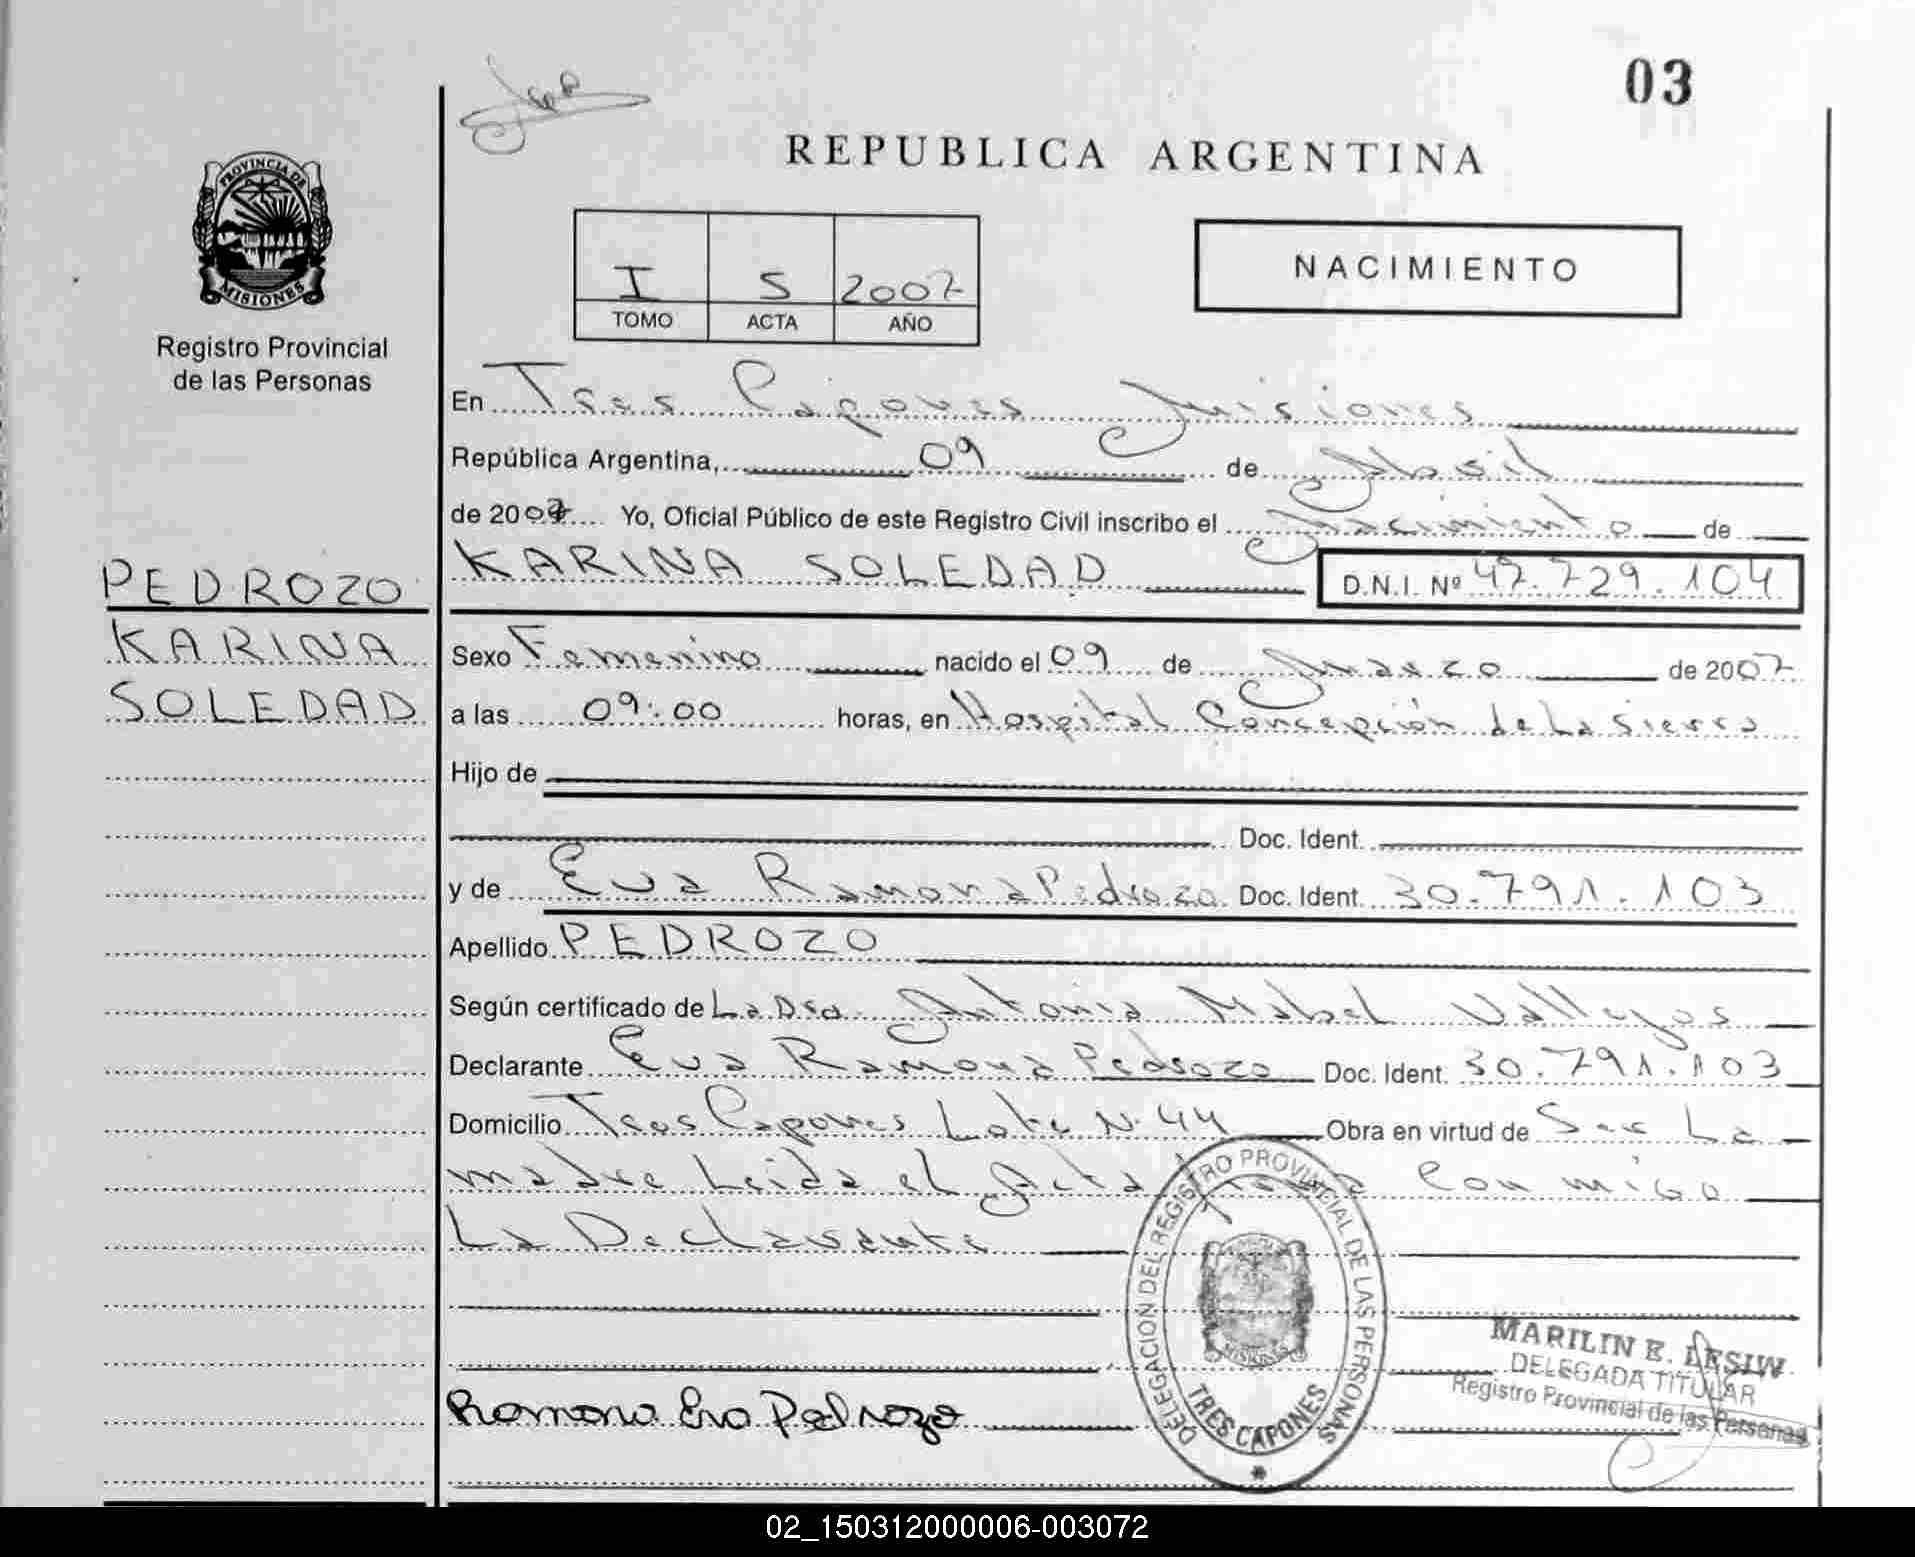 03
REPUBLICA ARGENTINA
PROVINCIA DE
MISIONES
Registro Provincial
de las Personas
I S 2007
TOMO ACTA AÑO
NACIMIENTO
En Tres Capones Misiones
República Argentina, 09 de Abril
de 2007 Yo, Oficial Público de este Registro Civil inscribo el Nacimiento de
KARINA SOLEDAD D.N.I. Nº 47.729.104
PEDROZO
KARINA
SOLEDAD
Sexo Femenino nacido el 09 de Marzo de 2007
a las 09:00 horas, en Hospital Concepción de La Sierra
Hijo de
Doc. Ident.
y de Eva Ramona Pedrozo Doc. Ident. 30.791.103
Apellido PEDROZO
Según certificado de La Dra. Antonia Mabel Vallejos
Declarante Eva Ramona Pedrozo Doc. Ident. 30.791.103
Domicilio Tres Capones Lote N. 44 Obra en virtud de Ser La
madre Leida el Acta Con migo
La Declarante
DELEGACION DEL REGISTRO PROVINCIAL DE LAS PERSONAS
TRES CAPONES
MARILIN E. LESIW
DELEGADA TITULAR
Registro Provincial de las Personas
Ramona Eva Pedrozo
02_150312000006-003072